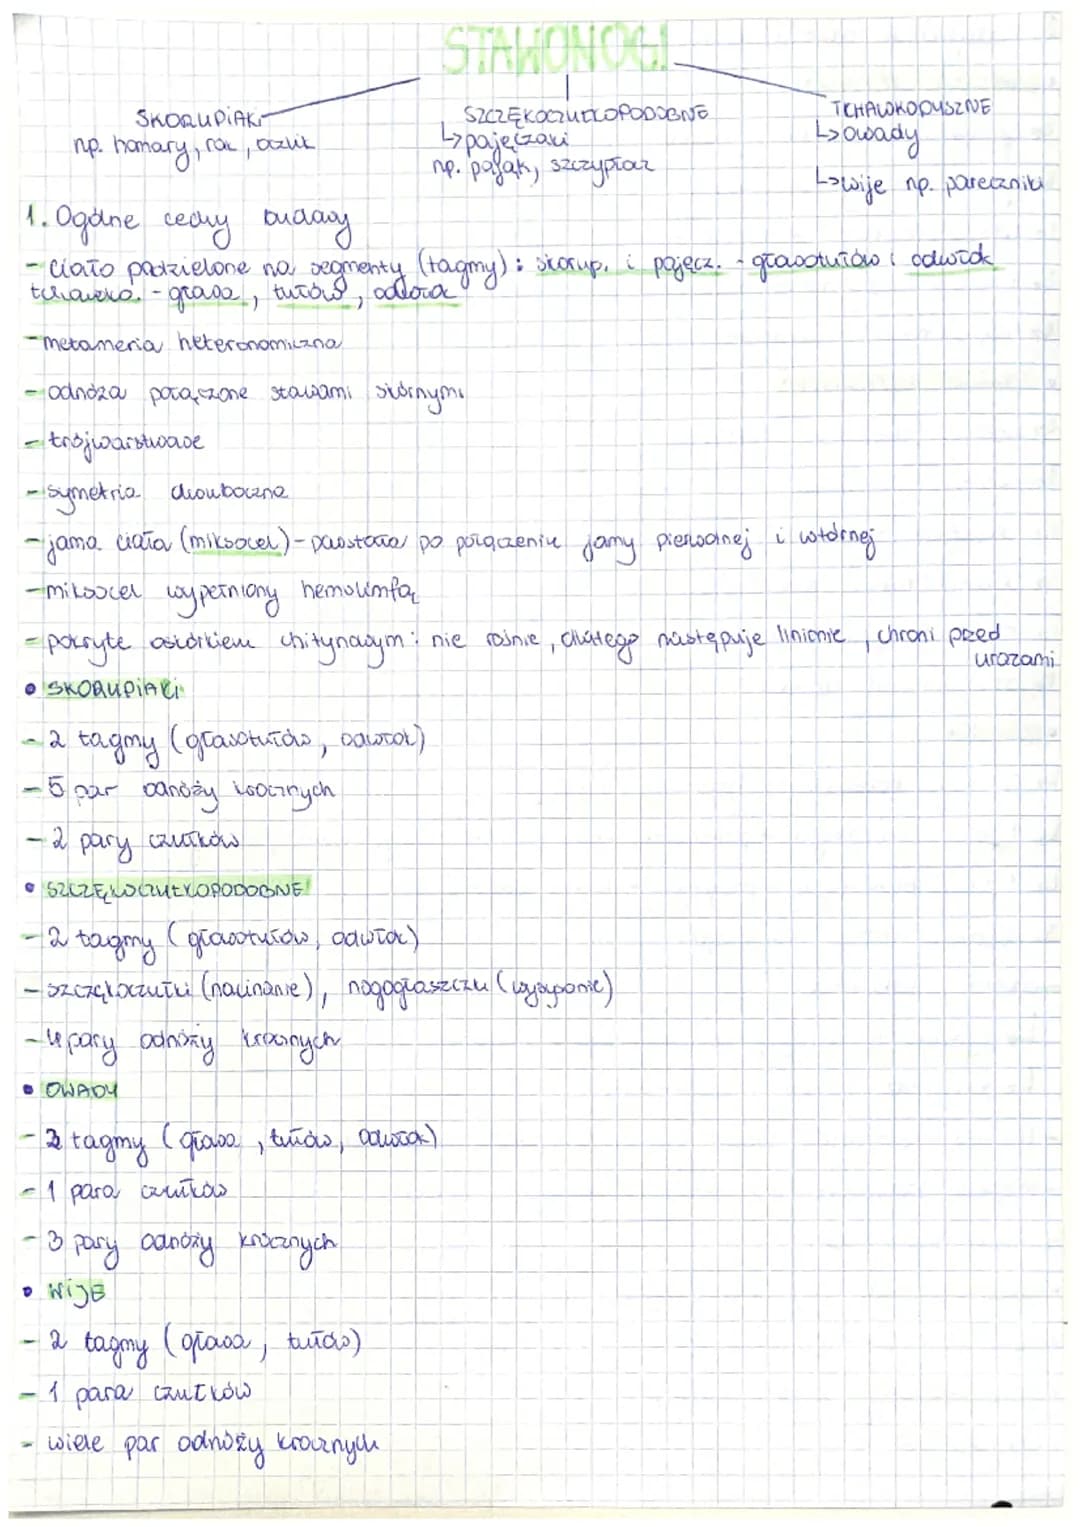 STAWONOGI
SKORUPIAKI
np. homary, rak, oczlik
SZCZĘKOCZUŁKOPODOBNE
↳pajęczaki
np. pająk, szczypiar
TCHAWKODYSZNE
↳owady
↳wije np. pareczniki
1. Ogólne cechy budowy
- ciało podzielone na segmenty (tagmy): skorup. i pajęcz. - głowotułów i odwłok
tchawko. - głowa, tułów, odwłok
- metameria heteronomiczna
- odnóża połączone stawami skórnymi
- trójwarstwowe
- symetria dwuboczna
- jama ciała (miksocel) - powstała po połączeniu jamy pierwotnej i wtórnej
- miksocel wypełniony hemolimfą
- pokryte oskórkiem chitynowym: nie rośnie, dlatego następuje linienie, chroni przed
urazami
• SKORUPIAKI
- 2 tagmy (głowotułów, odwłok)
- 5 par odnóży krocznych
- 2 pary czułków
• SZCZĘKOCZUŁKOPODOBNE
- 2 tagmy (głowotułów, odwłok)
- szczękoczułki (nacinanie), nogogłaszczki (wysypanie)
- 4 pary odnóży krocznych
• OWADY
- 3 tagmy (głowa, tułów, odwłok)
- 1 para czułków
- 3 pary odnóży krocznych
• WIJE
- 2 tagmy (głowa, tułów)
- 1 para czułków
- wiele par odnóży krocznych